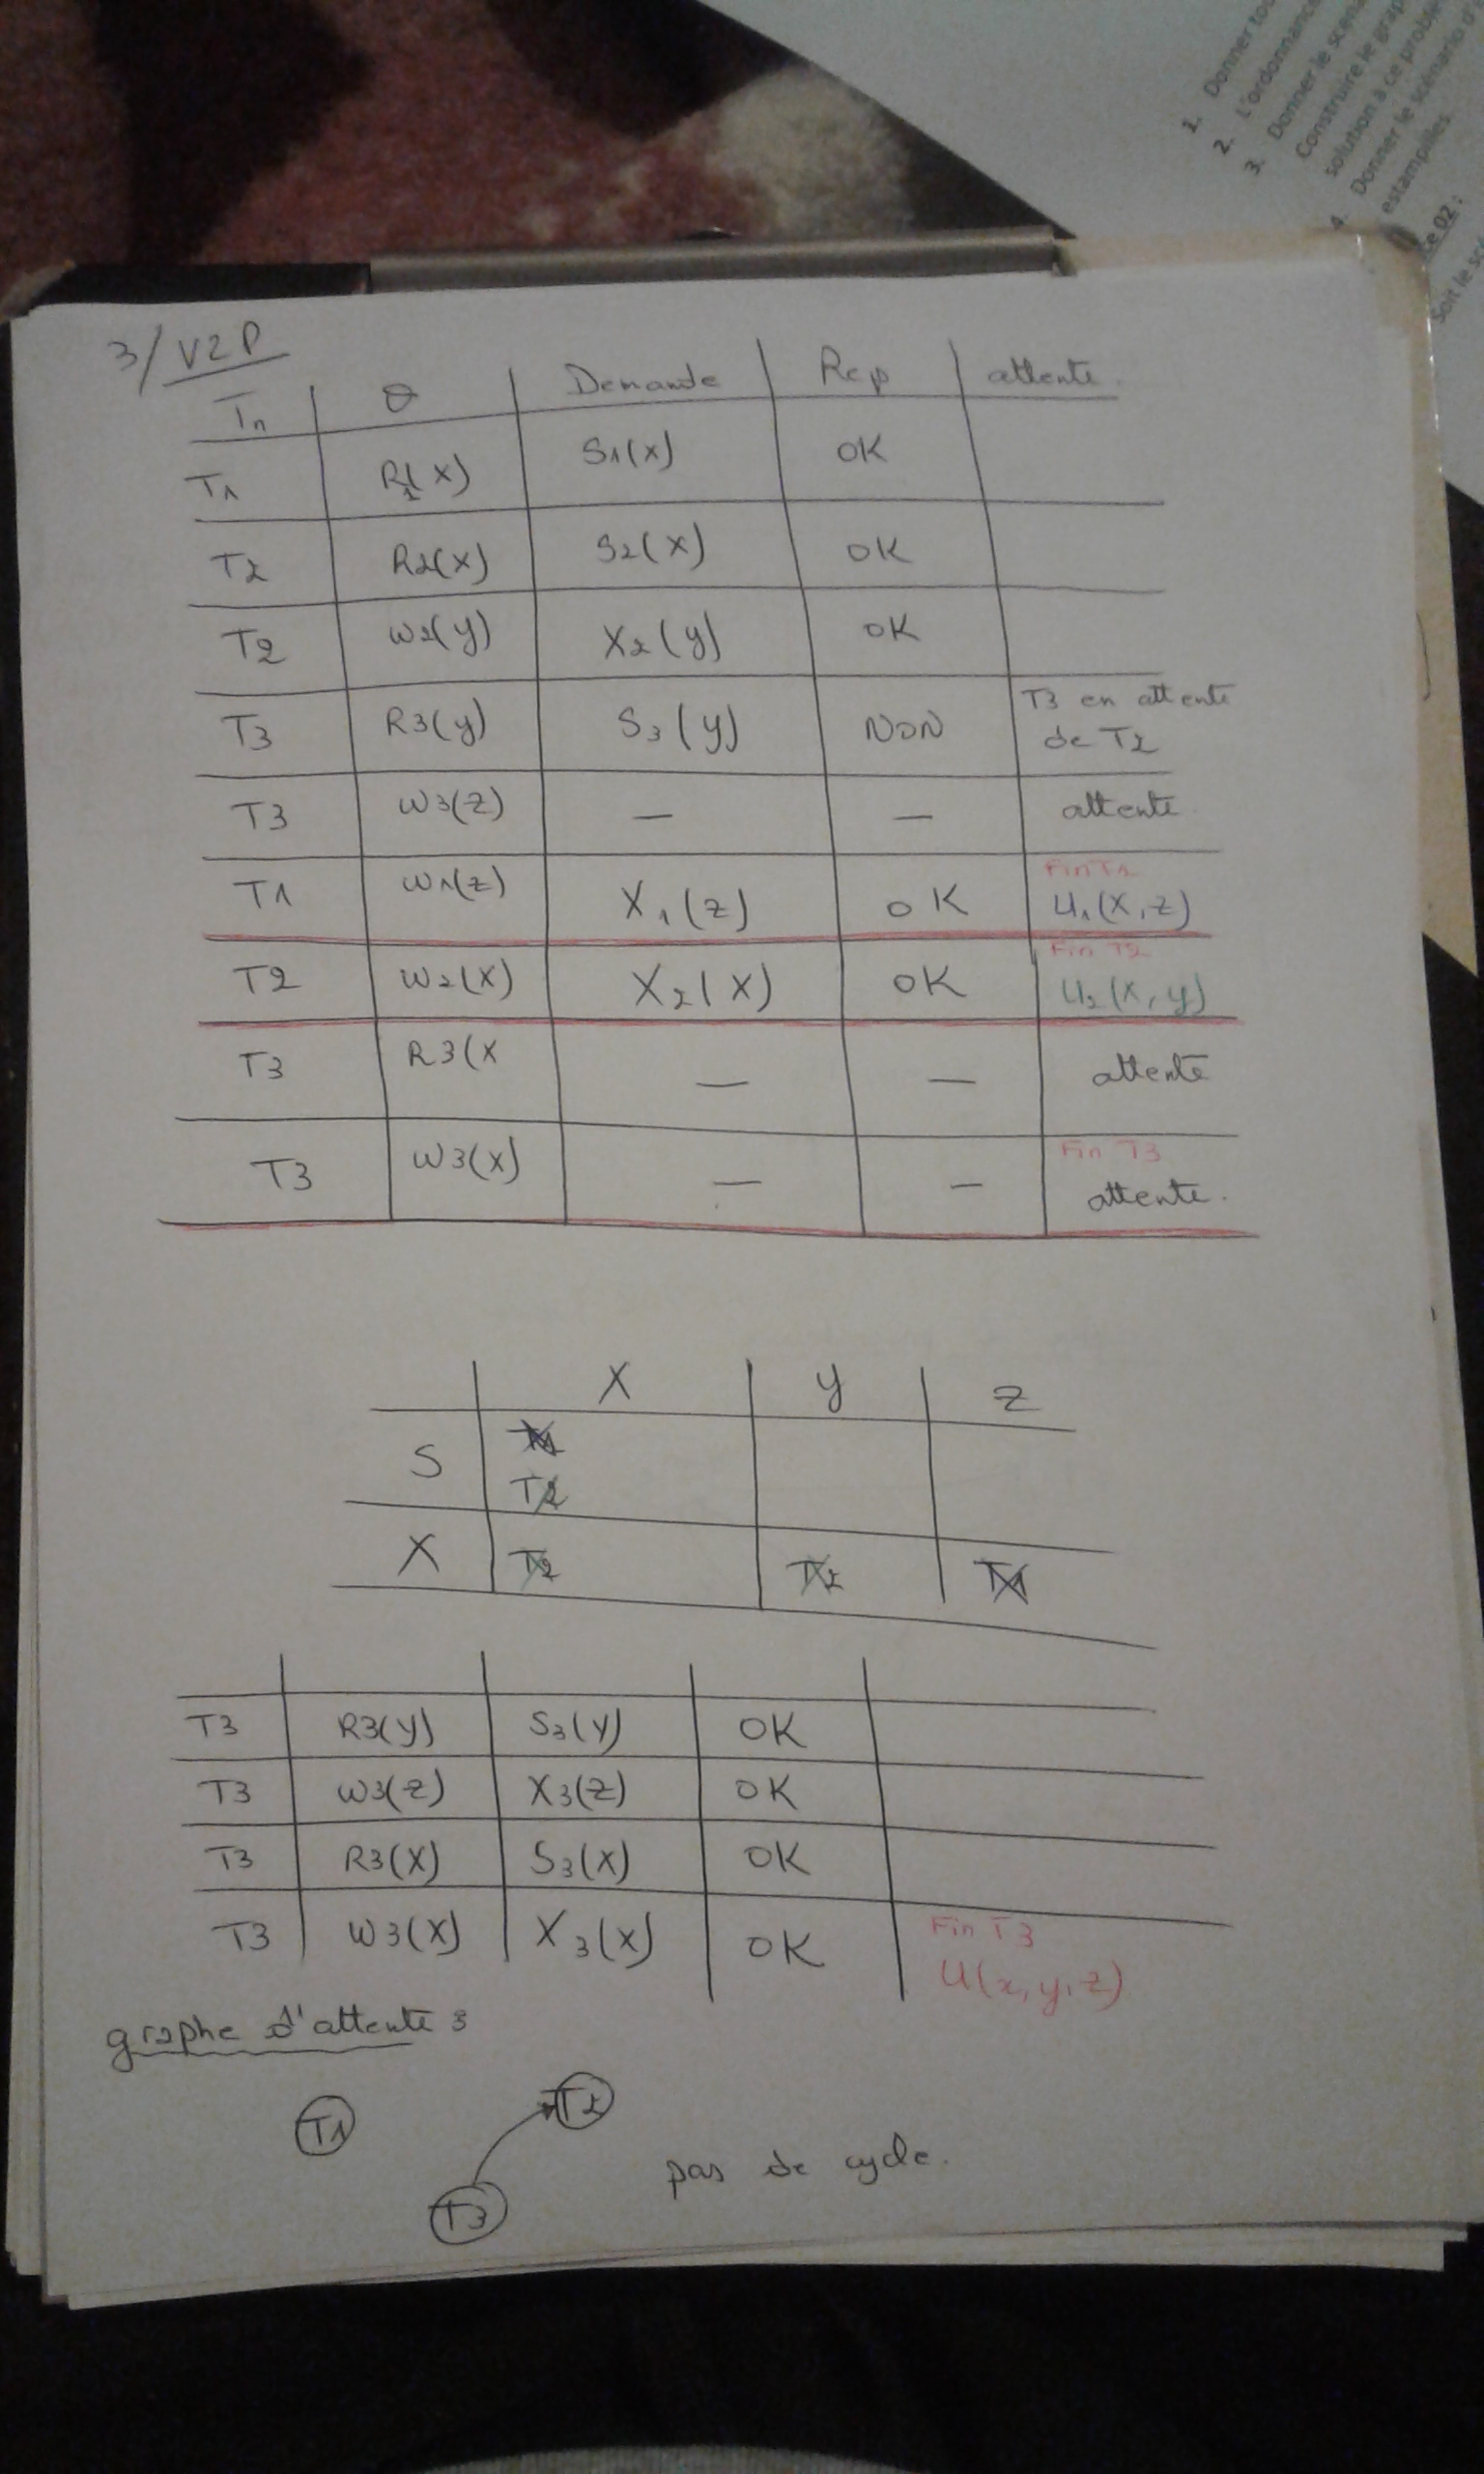 1. Donner tou
2. L'ordonnance
3. Donner le scéna
Construire le grap
solution à ce problè
4. Donner le scénario d'
estampilles
ce 02 :
Soit le scé
3/ V2P
Tn θ Demande Rep attente.
T1 R1(x) S1(x) OK
T2 R2(x) S2(x) OK
T2 W2(y) X2(y) OK
T3 R3(y) S3(y) NON T3 en attente de T2
T3 W3(z) — — attente
T1 W1(z) X1(z) OK Fin T1 U1(x,z)
T2 W2(x) X2(x) OK Fin T2 U2(x,y)
T3 R3(x — — attente
T3 W3(x) — — Fin T3 attente.
X y z
S T1
T2
X T2 T2 T1
T3 R3(y) S3(y) OK
T3 W3(z) X3(z) OK
T3 R3(x) S3(x) OK
T3 W3(x) X3(x) OK Fin T3
U(x,y,z)
graphe d'attente :
T1 T2
T3 pas de cycle.